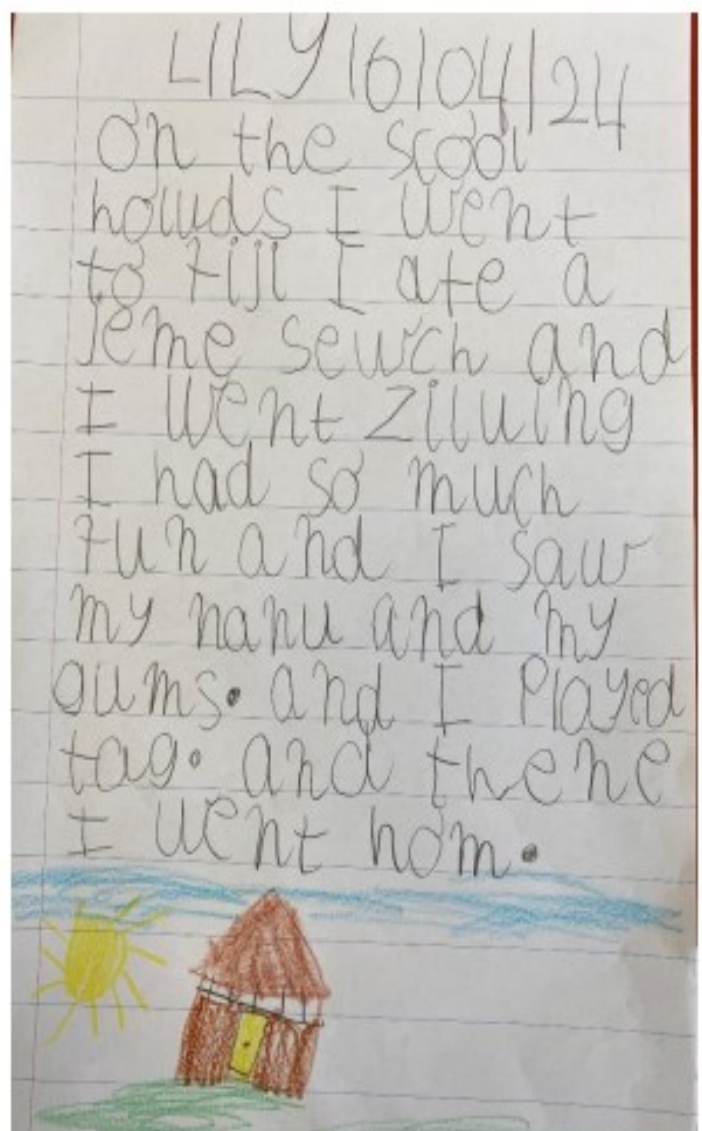 LILY 16/04/24
On the scool
holuds I went
to Fiji I ate a
jeme sewch and
I went ziluing
I had so much
fun and I saw
my nanu and my
gums. and I Played
tag. and thene
I went hom.